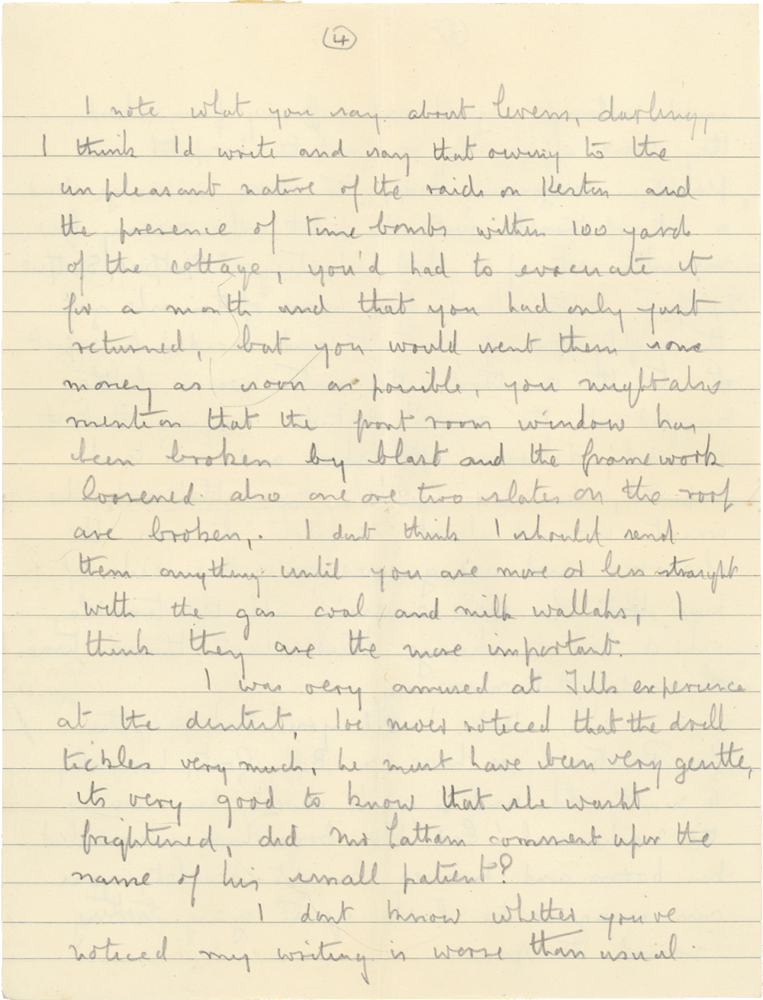 4
I note what you say about Levens, darling,
I think I'd write and say that owing to the
unpleasant nature of the raids on Keston and
the presence of time bombs within 100 yards
of the cottage, you'd had to evacuate it
for a month and that you had only just
returned, but you would sent them some
money as soon as possible, you might also
mention that the front room window has
been broken by blast and the framework
loosened. also one ore two slates on the roof
are broken,. I dont think I should send
them anything until you are more or less straight
with the gas coal and milk wallahs, I
think they are the more important.
I was very amused at Jills experience
at the dentist, Ive never noticed that the drill
tickles very much, he must have been very gentle,
its very good to know that she wasnt
frightened, did Mr Latham comment upon the
name of his small patient?
I dont know whether you've
noticed my writing is worse than usual.